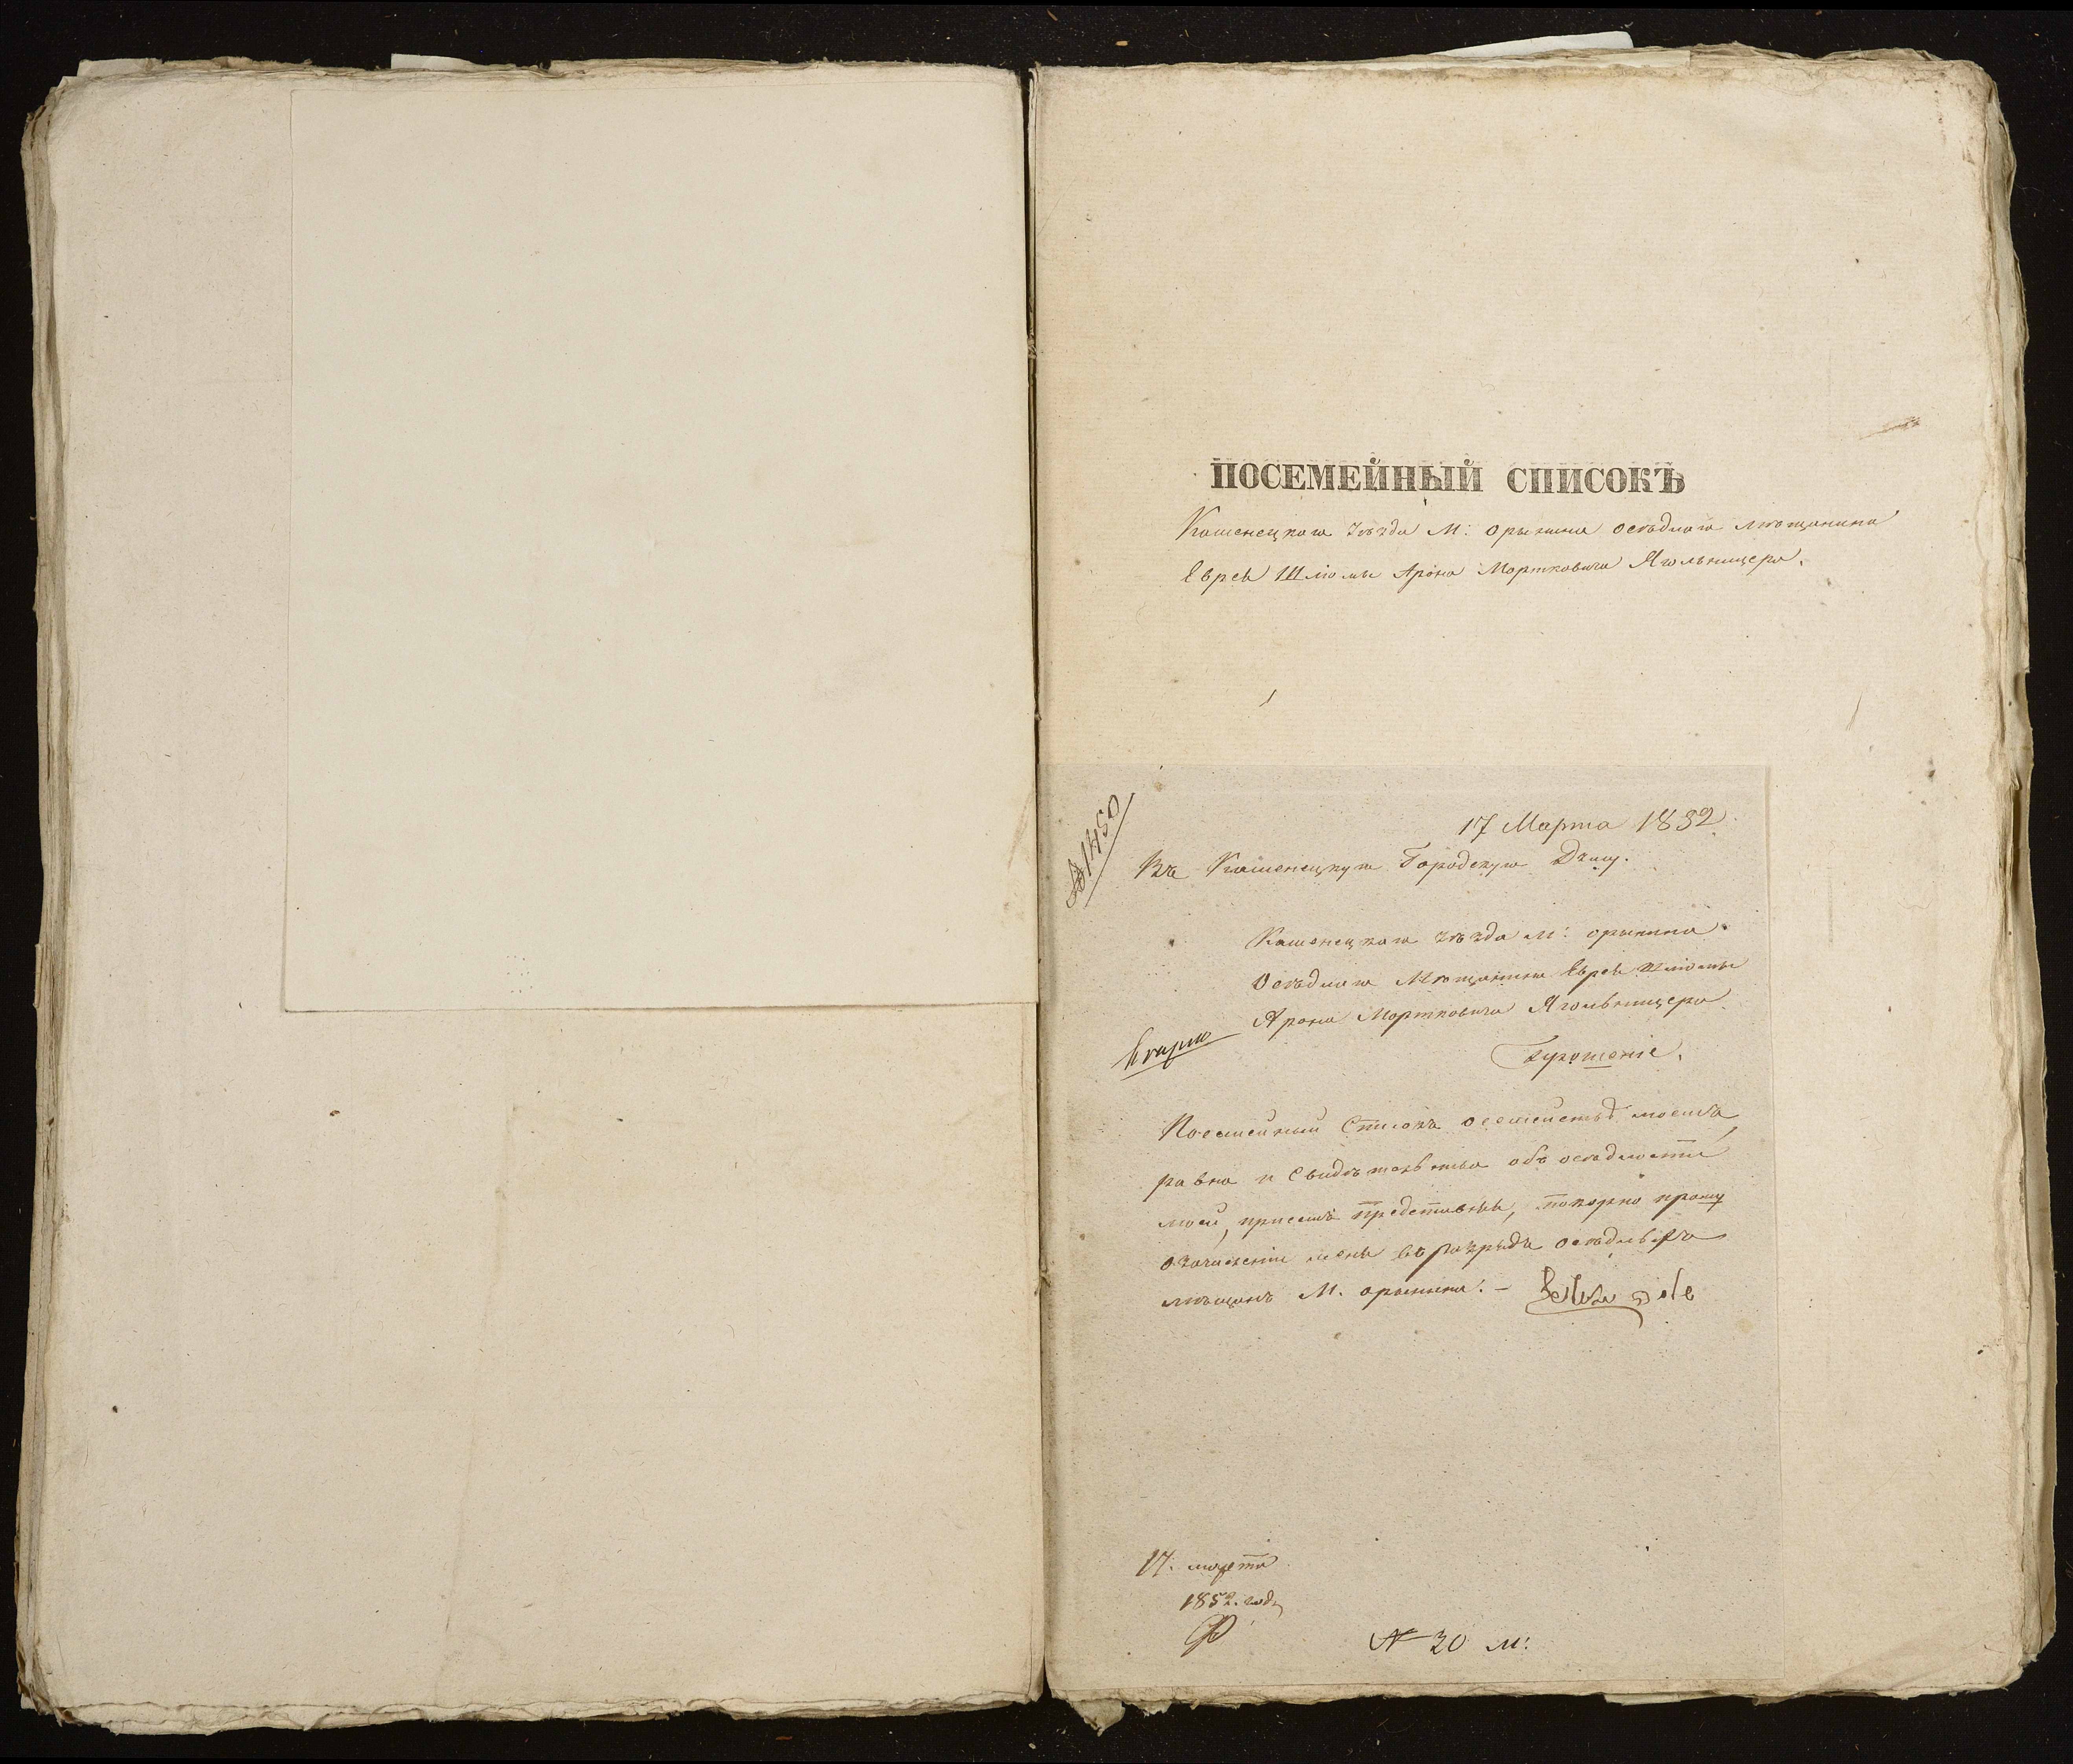 ПОСЕМЕЙНЫЙ СПИСОКЪ
Каменецкаго уѣзда М: Орынина осѣдлаго мѣщанина
Еврея Шлiомы Арона Мортковича Ягольницера.
17 Марта 1852
№ 1450
Въ Каменецкую Городскую Думу.
Каменецкаго уѣзда М: Орынина
Осѣдлаго Мѣщанина Еврея Шлiомы
Арона Мортковича Ягольницера
Прошенiе.
Посемейный Списокъ о семействѣ моемъ,
равно и Свидѣтельство объ осѣдлости
моей, присемъ представляя, покорно прошу
о зачисленiи меня въ разрядъ осѣдлыхъ
мѣщанъ М. Орынина. –
17. марта
1852. года
№ 20 М: